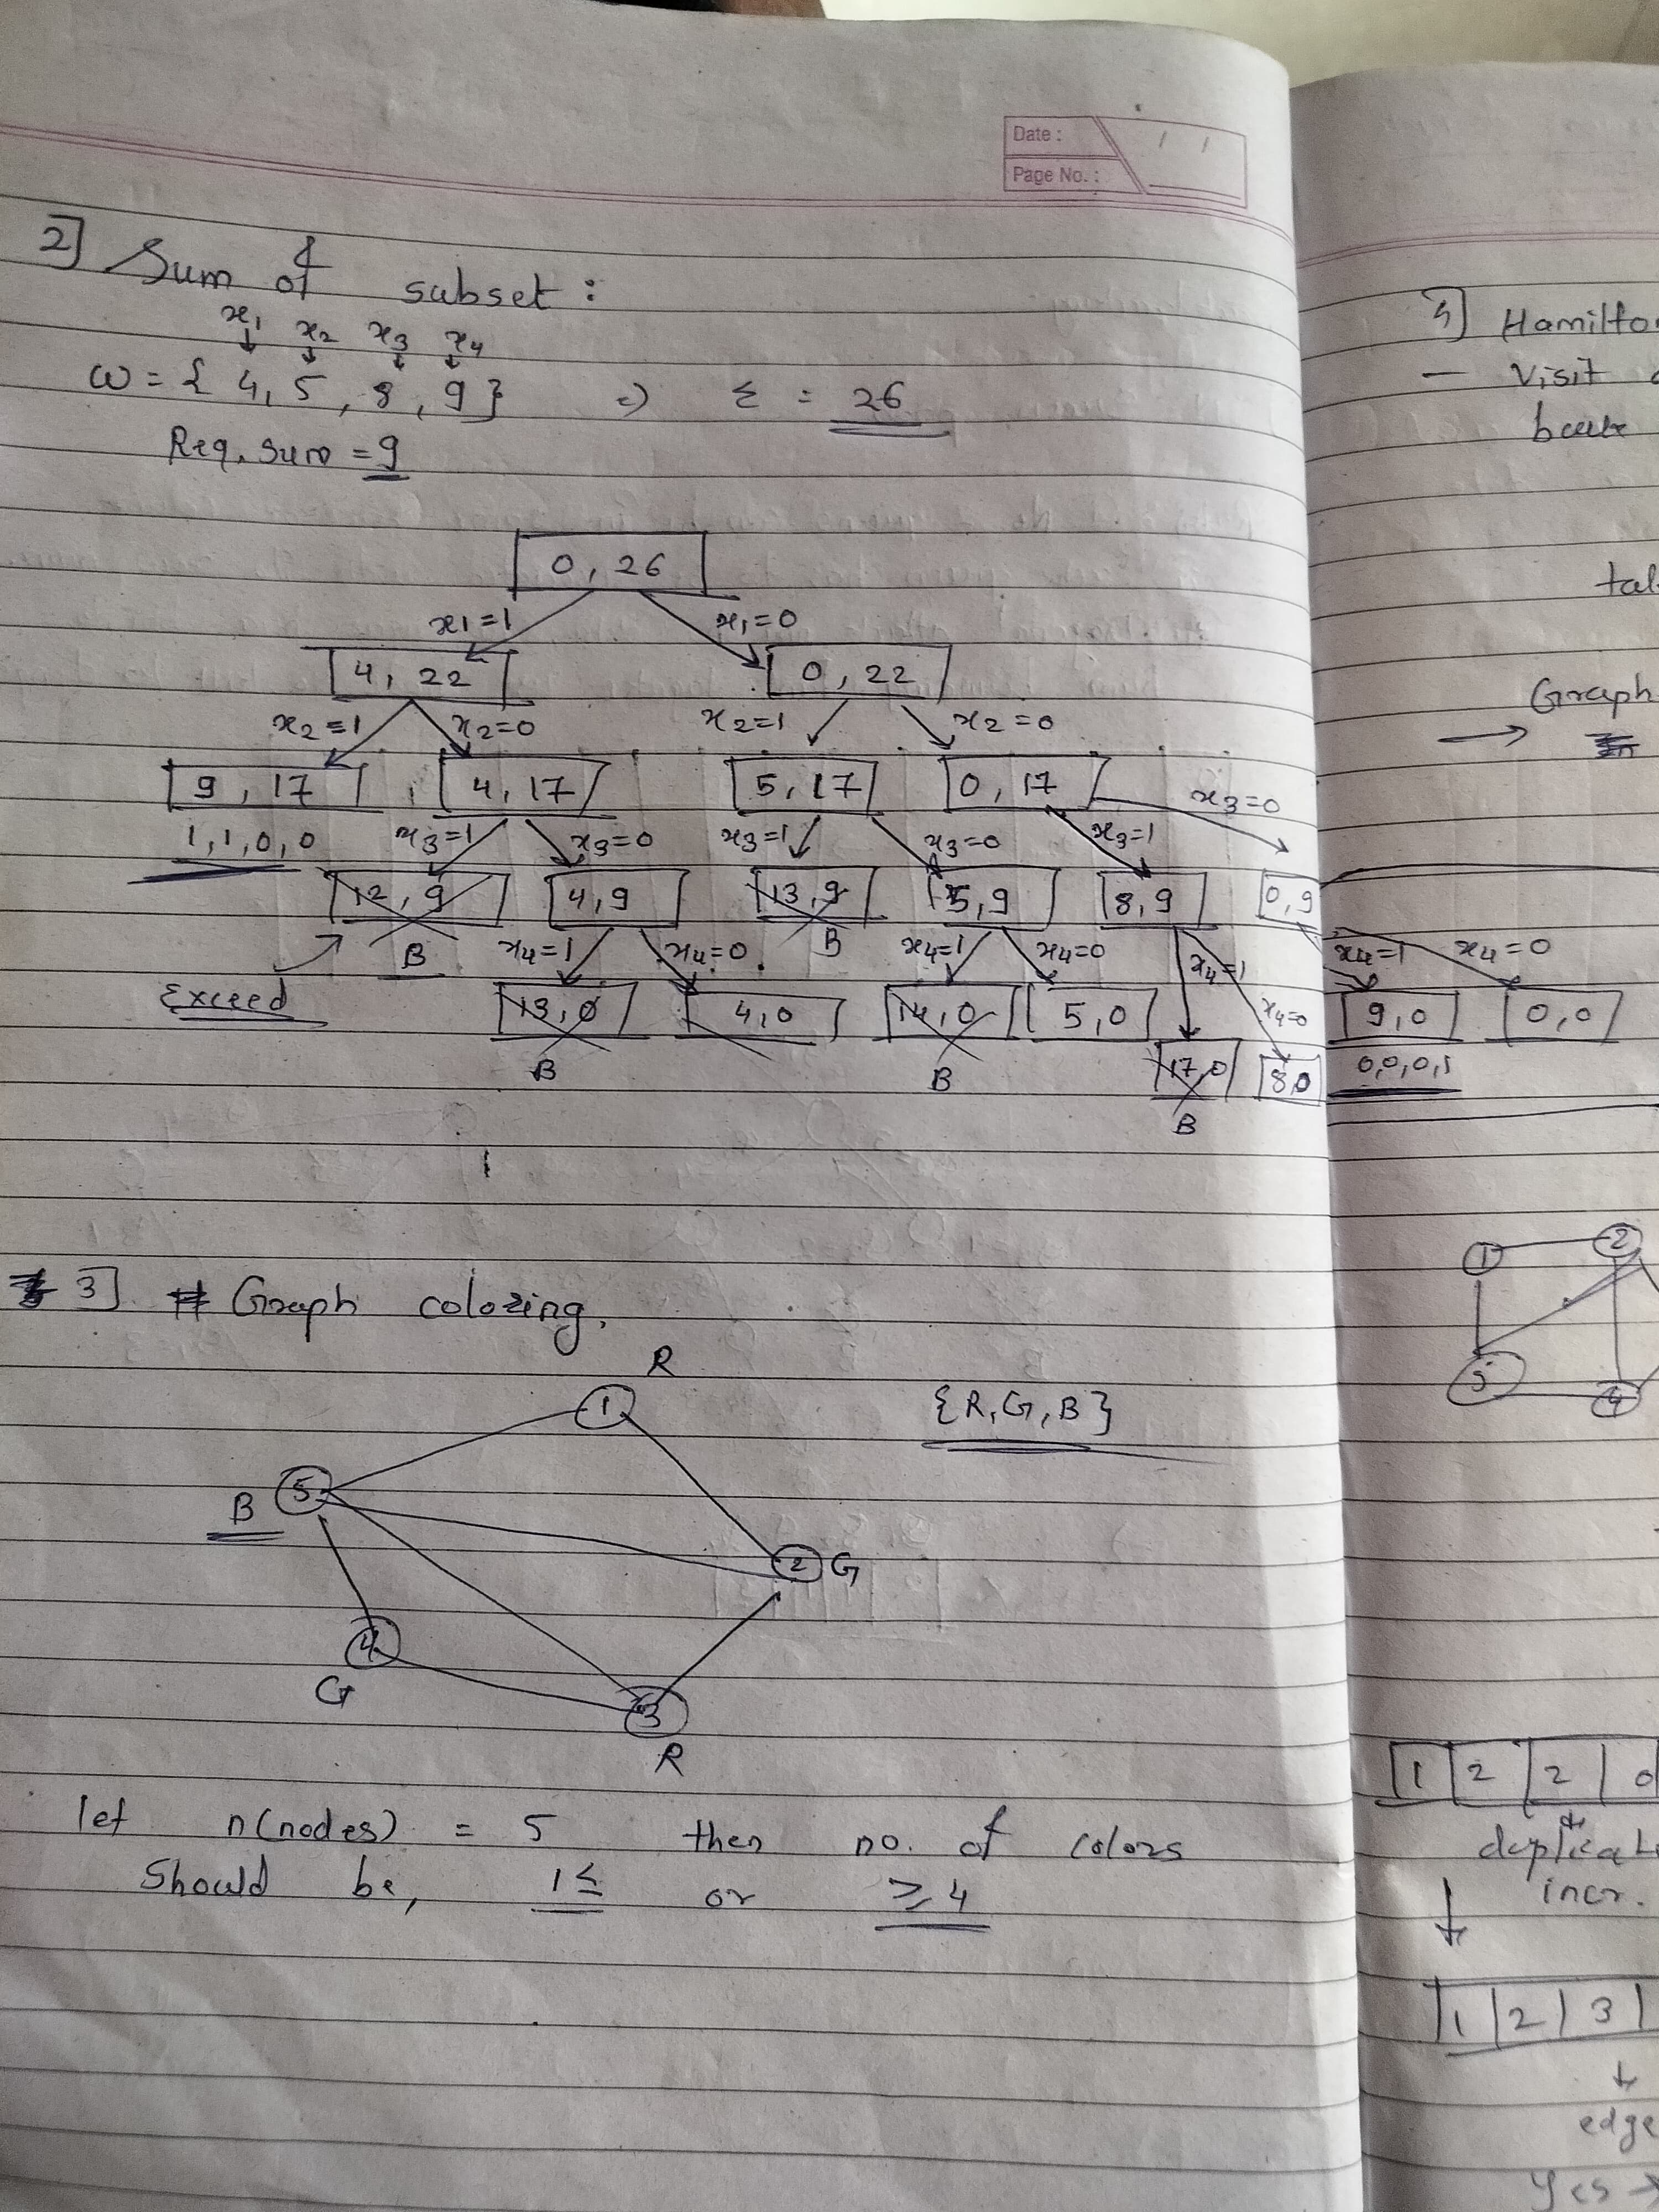 Date : / /
Page No. :
2] Sum of subset :
x1 x2 x3 x4
w = { 4, 5, 8, 9 } => Σ = 26
Req. sum = 9
0, 26
x1=1 x1=0
4, 22 0, 22
x2=1 x2=0 x2=1 x2=0
9, 17 4, 17 5, 17 0, 17
x3=0
1, 1, 0, 0 x3=1 x3=0 x3=1 x3=0 x3=1
12, 9 4, 9 13, 9 5, 9 8, 9 0, 9
B x4=1 x4=0 B x4=1 x4=0 x4=1 x4=1 x4=0
Exceed 13, 0 4, 0 14, 0 5, 0 x4=0 9, 0 0, 0
B B 17, 0 8, 0 0,0,0,1
B
3] # Graph coloring.
R
1 {R, G, B}
B 5
2 G
4
G 3
R
let n(nodes) = 5 then no. of colors
should be, 1≤ or ≥ 4
Visit
Graph
1 2
3 4
1 2 2 0
incr.
1 2 3
edge
Yes →